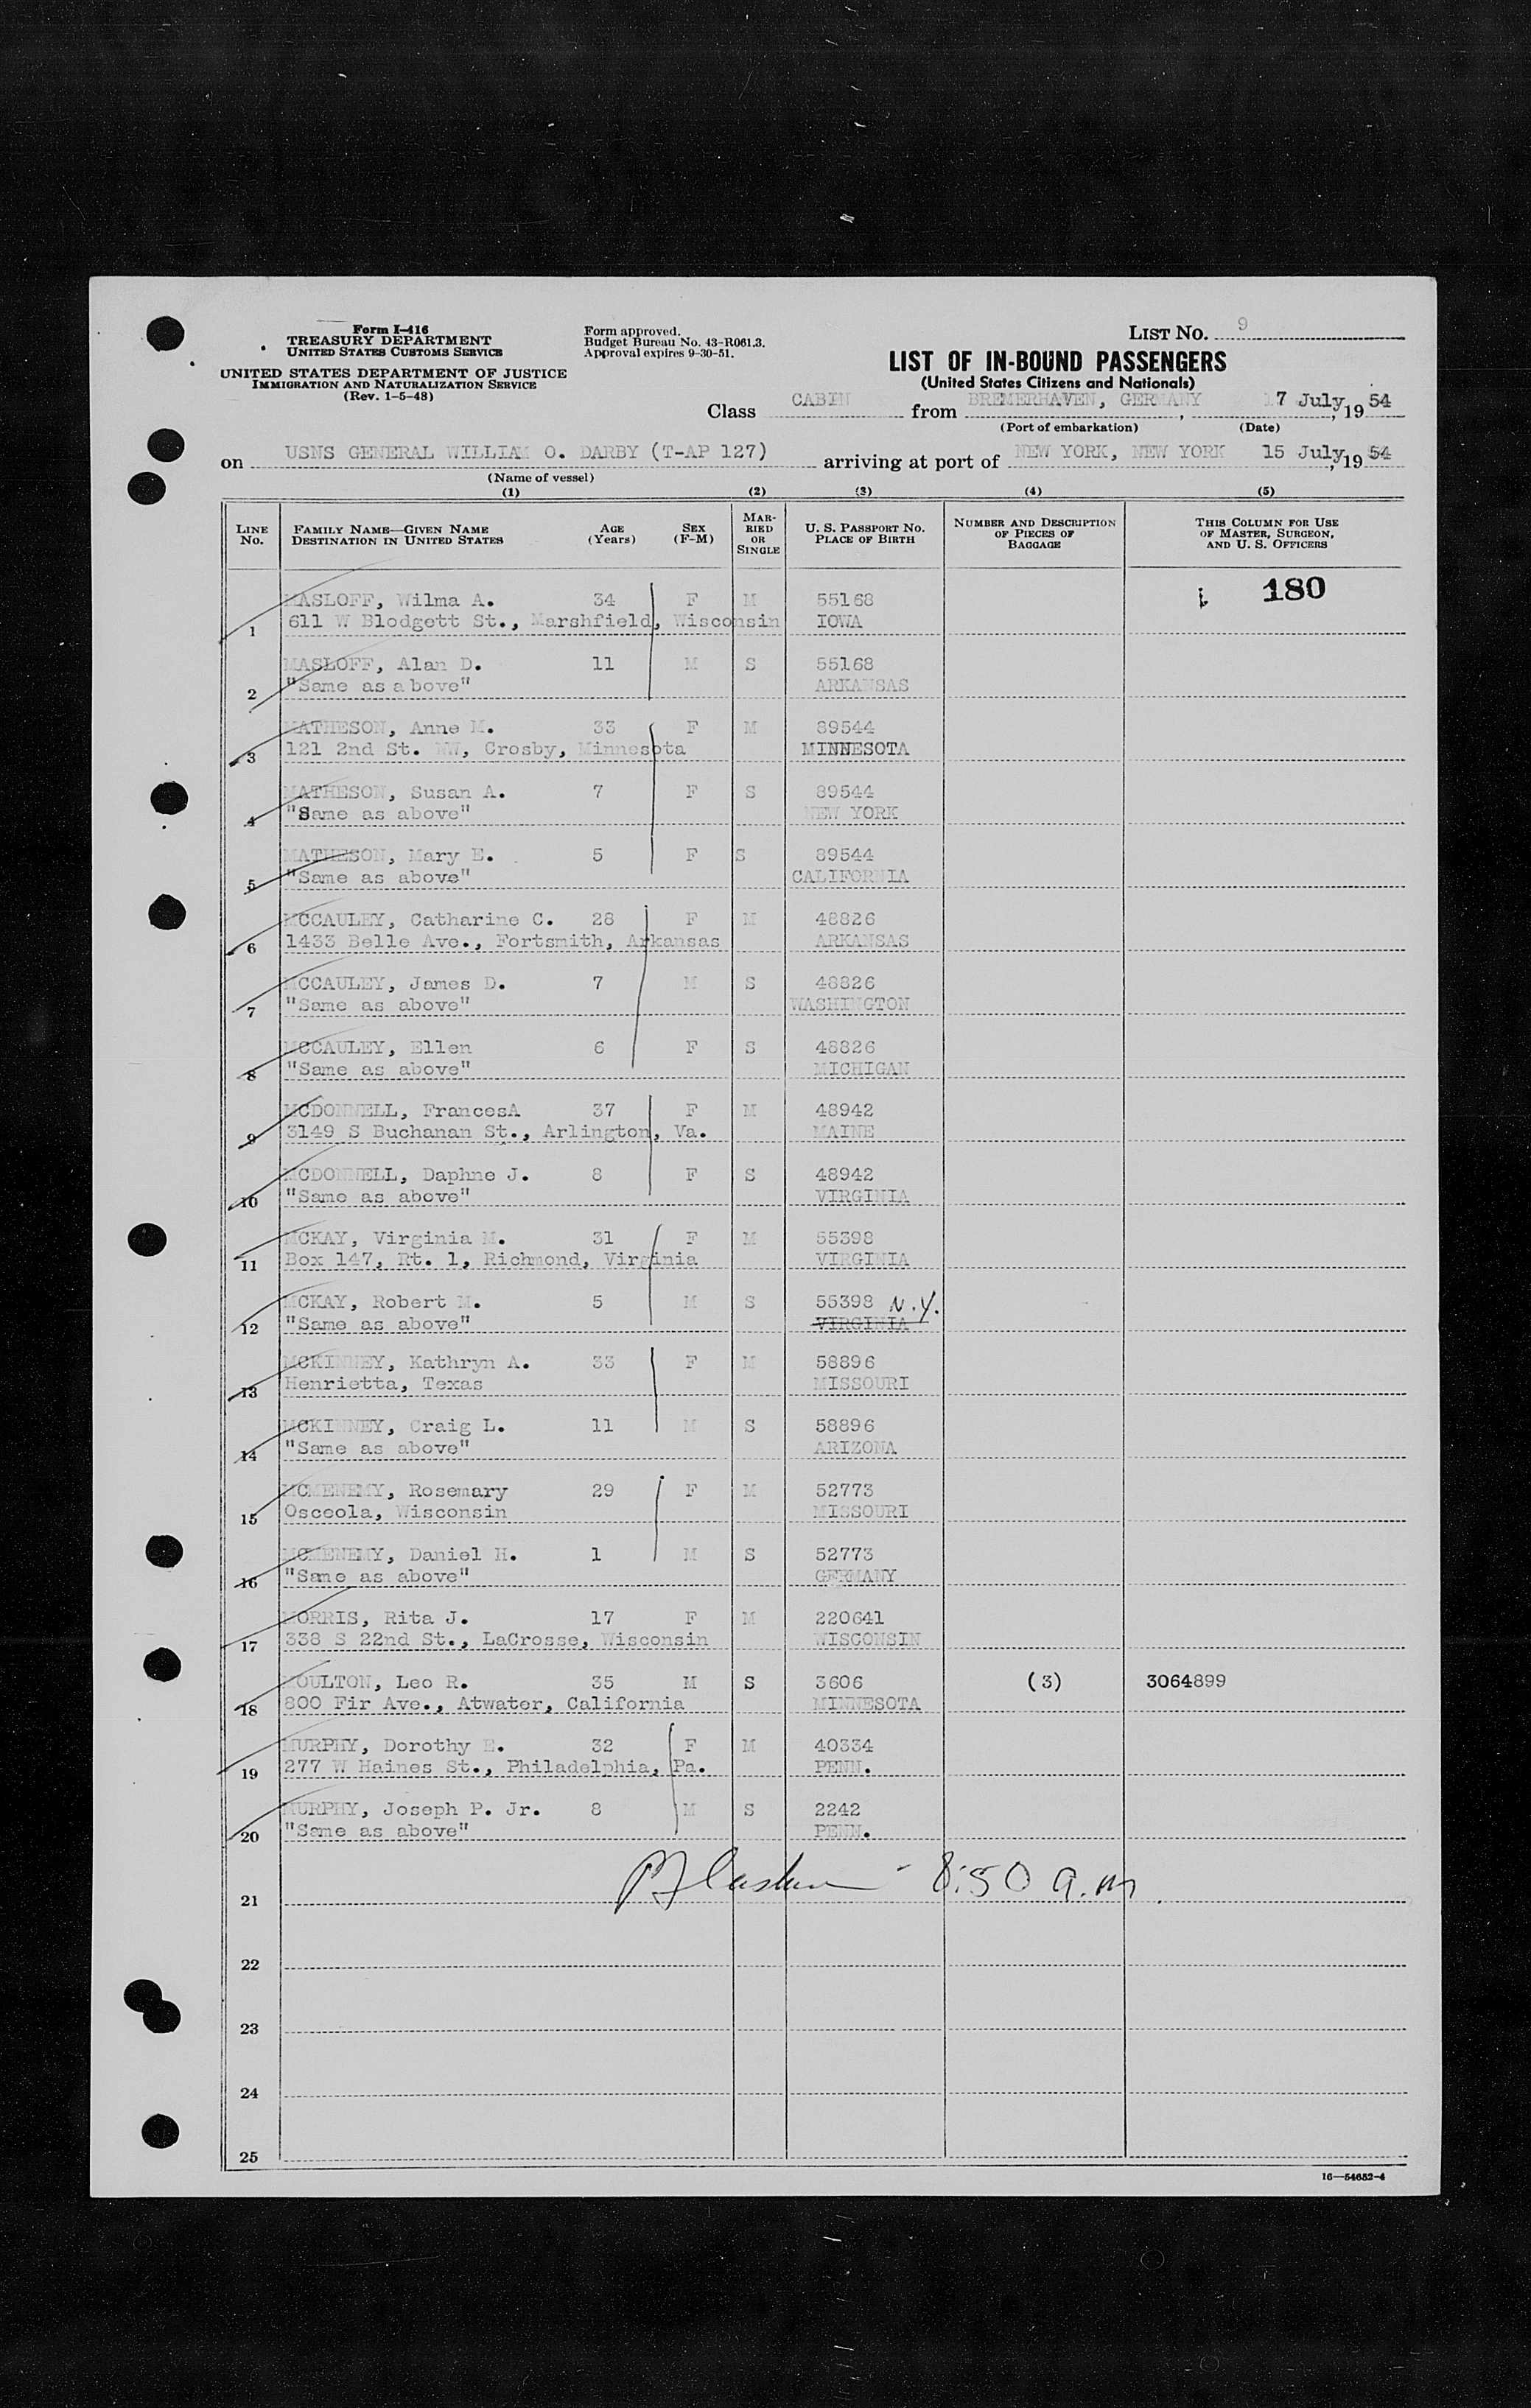 Form I-416
TREASURY DEPARTMENT
UNITED STATES CUSTOMS SERVICE
UNITED STATES DEPARTMENT OF JUSTICE
IMMIGRATION AND NATURALIZATION SERVICE
(Rev. 1-5-48)
Form approved.
Budget Bureau No. 43-R061.3.
Approval expires 9-30-51.
LIST No. 9
LIST OF IN-BOUND PASSENGERS
(United States Citizens and Nationals)
Class CABIN from BREMERHAVEN, GERMANY, 7 July, 19 54
(Port of embarkation) (Date)
on USNS GENERAL WILLIAM O. DARBY (T-AP 127) arriving at port of NEW YORK, NEW YORK 15 July, 19 54
(Name of vessel)
(1) (2) (3) (4) (5)
LINE No. FAMILY NAME—GIVEN NAME DESTINATION IN UNITED STATES AGE (Years) SEX (F-M) MARRIED OR SINGLE U. S. PASSPORT No. PLACE OF BIRTH NUMBER AND DESCRIPTION OF PIECES OF BAGGAGE THIS COLUMN FOR USE OF MASTER, SURGEON, AND U. S. OFFICERS
180
MASLOFF, Wilma A. 34 F M 55168
1 611 W Blodgett St., Marshfield, Wisconsin IOWA
MASLOFF, Alan D. 11 M S 55168
2 "Same as above" ARKANSAS
MATHESON, Anne M. 33 F M 89544
3 121 2nd St. NW, Crosby, Minnesota MINNESOTA
MATHESON, Susan A. 7 F S 89544
4 "Same as above" NEW YORK
MATHESON, Mary E. 5 F S 89544
5 "Same as above" CALIFORNIA
MCCAULEY, Catharine C. 28 F M 48826
6 1433 Belle Ave., Fortsmith, Arkansas ARKANSAS
MCCAULEY, James D. 7 M S 48826
7 "Same as above" WASHINGTON
MCCAULEY, Ellen 6 F S 48826
8 "Same as above" MICHIGAN
MCDONNELL, FrancesA 37 F M 48942
9 3149 S Buchanan St., Arlington, Va. MAINE
MCDONNELL, Daphne J. 8 F S 48942
10 "Same as above" VIRGINIA
MCKAY, Virginia M. 31 F M 55398
11 Box 147, Rt. 1, Richmond, Virginia VIRGINIA
MCKAY, Robert M. 5 M S 55398 N.Y.
12 "Same as above" VIRGINIA
MCKINNEY, Kathryn A. 33 F M 58896
13 Henrietta, Texas MISSOURI
MCKINNEY, Craig L. 11 M S 58896
14 "Same as above" ARIZONA
MCMENEMY, Rosemary 29 F M 52773
15 Osceola, Wisconsin MISSOURI
MCMENEMY, Daniel H. 1 M S 52773
16 "Same as above" GERMANY
MORRIS, Rita J. 17 F M 220641
17 338 S 22nd St., LaCrosse, Wisconsin WISCONSIN
MOULTON, Leo R. 35 M S 3606 (3) 3064899
18 800 Fir Ave., Atwater, California MINNESOTA
MURPHY, Dorothy E. 32 F M 40334
19 277 W Haines St., Philadelphia, Pa. PENN.
MURPHY, Joseph P. Jr. 8 M S 2242
20 "Same as above" PENN.
8:50 a.m.
21
22
23
24
25
16—54652-4